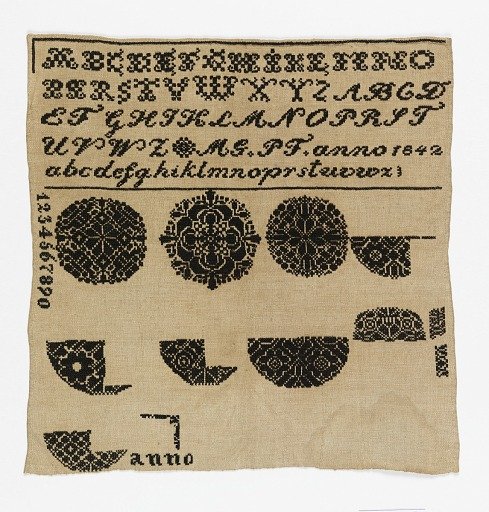 ABCDEFGHIKLMNO
PQRSTVWXYZABCD
EFGHIKLMNOPRST
UVWZ MG.PT.anno 1842
abcdefghiklmnoprstuvwxz
1234567890
anno